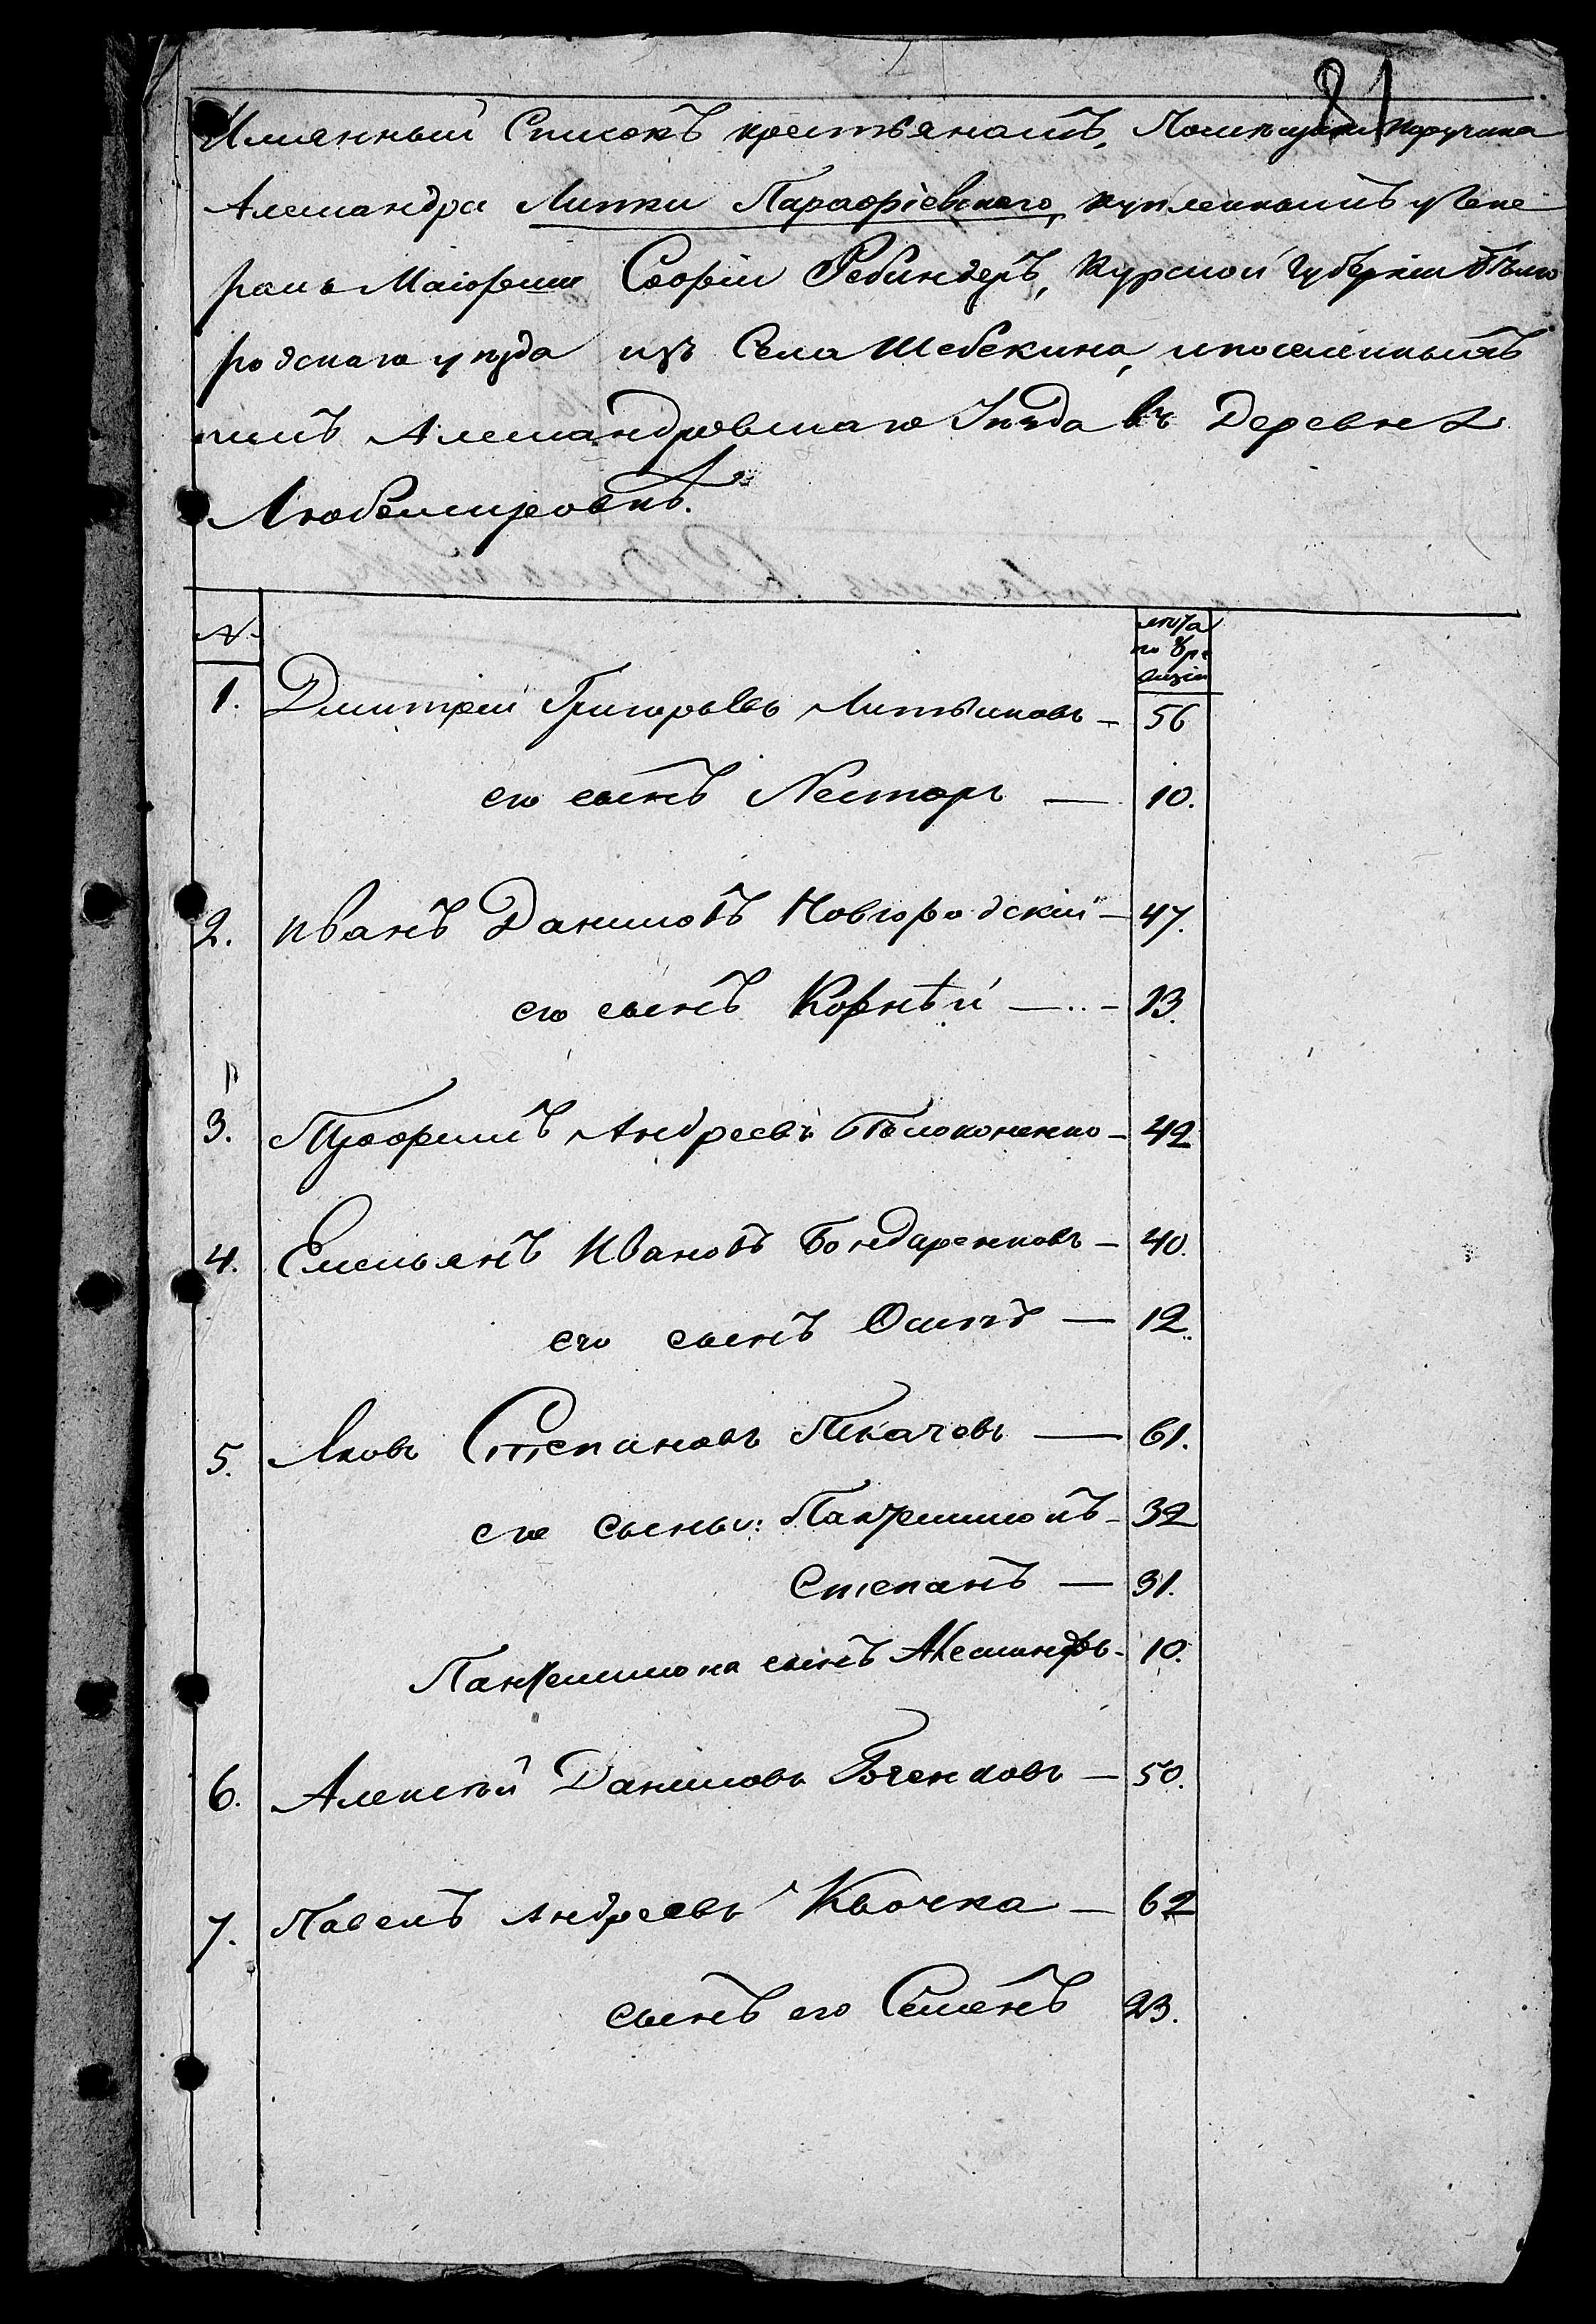 81
Имянный Списокъ крестьянамъ, Помѣщика Поручика
Александра Липки Парафіевскаго, купленнымъ у Гене
ралъ Маіорши Софіи Ребиндеръ, Курской Губерніи Бѣлго
родскаго уѣзда изъ Села Шебекина, и поселеннымъ
имъ Александровскаго Уѣзда въ Деревне
Любомировкѣ.
№ лѣта
по 8 ре
визіи
1. Дмитрий Григорьевъ Литвиновъ — 56
его сынъ Несторъ — 10.
2. Иванъ Даниловъ Новгородскій — 47.
его сынъ Корнѣй — 13.
3. Трофимъ Андреевъ Белоконенко — 42
4. Емельянъ Ивановъ Бондаренковъ — 40.
его сынъ Осипъ — 12.
5. Яковъ Степановъ Ткачовъ — 61.
его сыны: Пантелимонъ — 32
Степанъ — 31.
Пантелимона сынъ Александръ — 10.
6. Алексѣй Даниловъ Боченковъ — 50.
7. Павелъ Андреевъ Квочка — 62
сынъ его Семенъ 23.